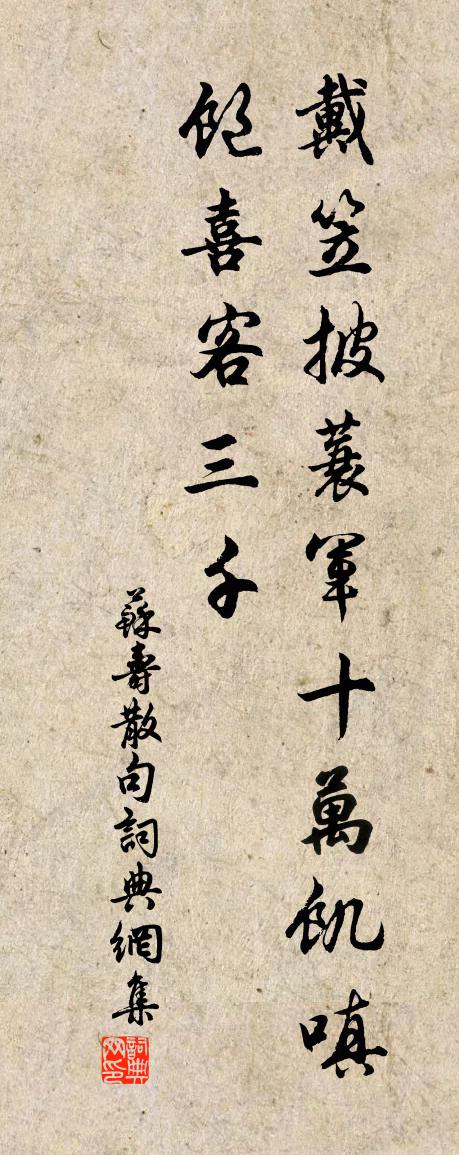 戴笠披蓑軍十萬飢嗔
飽喜客三千
蘇壽散句詞典網集
詞典網印